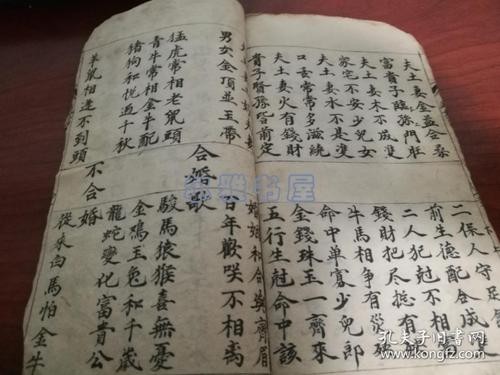 夫土妻金益金桑
富貴子臨孫門旺
夫土妻木不成雙
家宅不安少兒女
夫土妻水不是雙
口舌常常多滋繞
夫土妻火有錢財
貴子賢孫皆前定
二保人守足
前生德配合成
二人犯尅不相當
錢財把尽捴有
牛馬相争有災殃
命中单寡少兒郎
金錢珠玉一齊來
五行生尅命中該
婚姻和合齊眉
男女金頂並玉帶
合婚歌
百年歡咲不相离
猛虎常相老鼠頭
駿馬猿猴喜無憂
青牛常相金牛配
金鴻玉兔和千歲
豬狗和悦過千秋
龍蛇變化富貴公
不合婚
羊鼠相逢不到頭
從來白馬怕金牛
雅书屋
孔夫子旧书网
kongfz.com